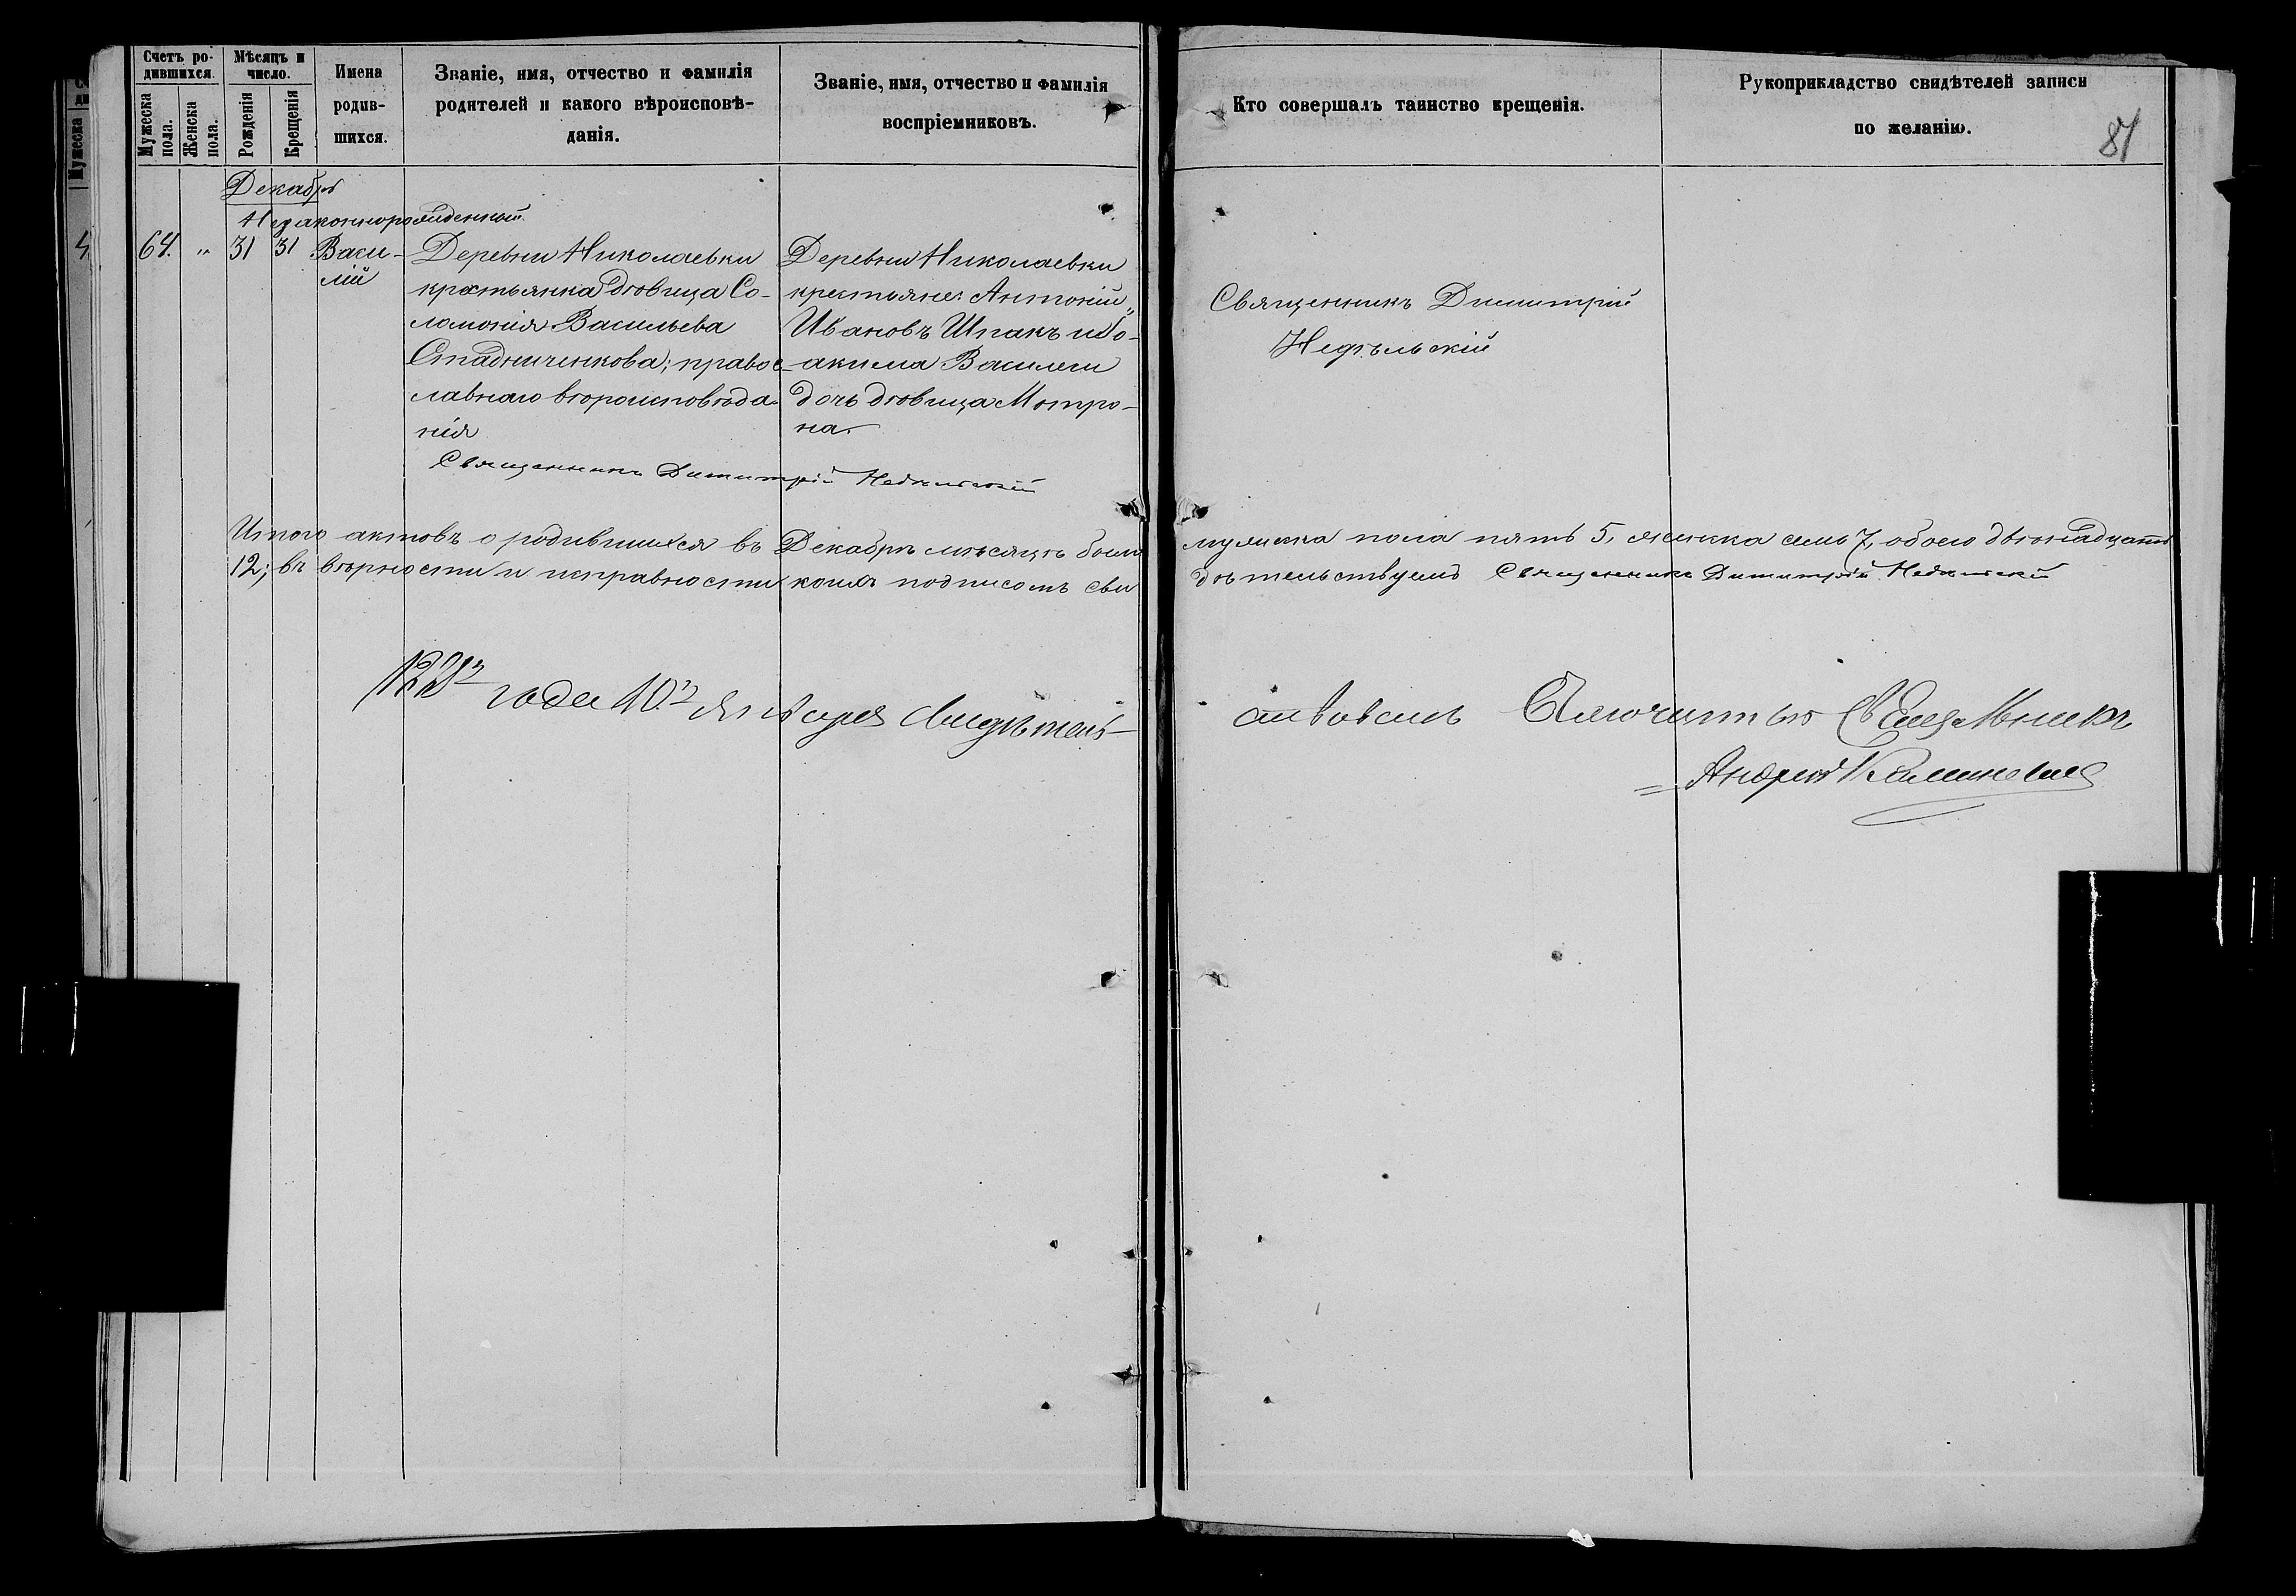 Счетъ ро-
дившихся.
Мѣсяцъ и
число.
Мужеска
пола.
Женска
пола.
Рожденія
Крещенія
Имена
родив-
шихся.
Званіе, имя, отчество и фамилія
родителей и какого вѣроисповѣ-
данія.
Званіе, имя, отчество и фамилія
воспріемниковъ.
Кто совершалъ таинство крещенія.
Рукоприкладство свидѣтелей записи
по желанію.
81
Декабрь
Незаконнорожденный
64. „ 31 31 Васи-
лій
Деревни Николаевки
крестьянка дѣвица Со-
ломонія Васильева
Стадниченкова; правос-
лавнаго вѣроисповѣда-
нія
Деревни Николаевки
крестьяне: Антоній
Ивановъ Шпакъ и Іо-
акима Василеги
дочь дѣвица Мотро-
на.
Священникъ Димитрій
Недѣльскій
Священникъ Димитрій Недѣльскій
Итого актовъ о родившихся въ Декабрѣ мѣсяцѣ было мужеска пола пять 5, женска семь 7, обоего двѣнадцать
12; въ вѣрности и исправности коихъ подписомъ сви дѣтельствуемъ Священникъ Димитрій Недѣльскій
года 10го Января Свидѣтель- ствовалъ Благочинный Священникъ
Андрей